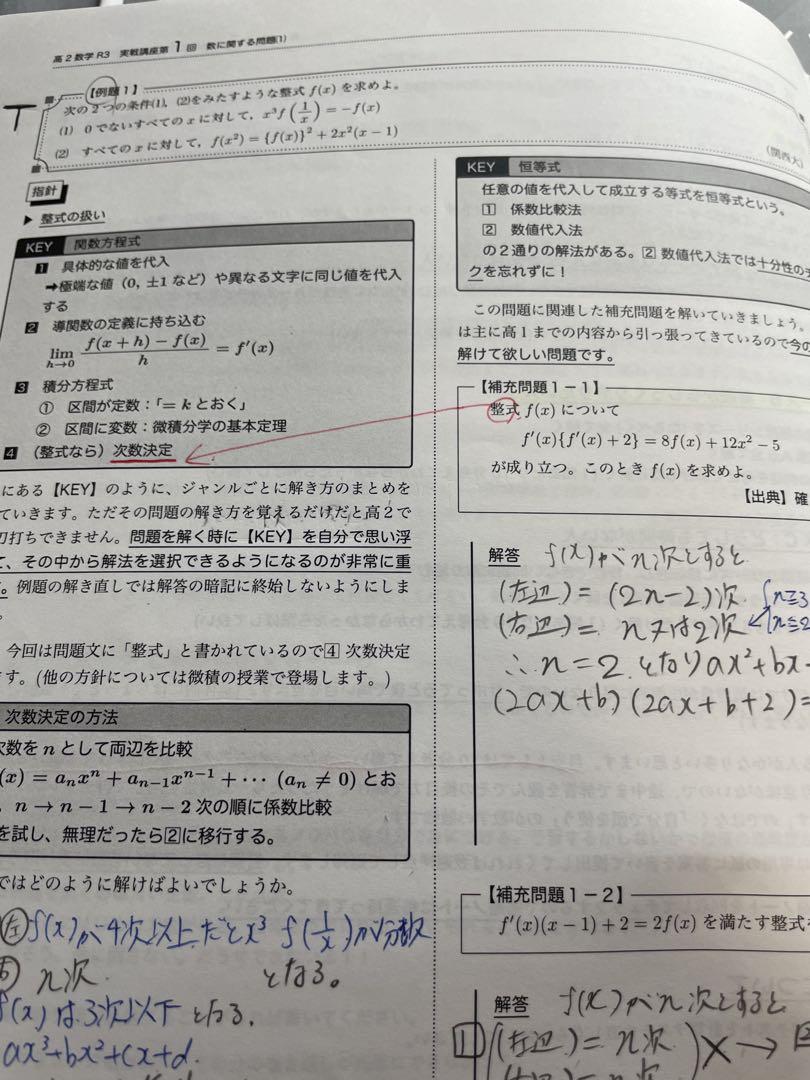 高2数学R3 実戦講座第1回 数に関する問題(1)
【例題1】
次の2つの条件(1), (2)をみたすような整式 f(x) を求めよ。
(1) 0でないすべての x に対して, x³f(1/x) = −f(x)
(2) すべての x に対して, f(x²) = {f(x)}² + 2x²(x − 1)
(関西大)
指針
▶ 整式の扱い
KEY 関数方程式
1 具体的な値を代入
➡極端な値(0, ±1 など)や異なる文字に同じ値を代入
する
2 導関数の定義に持ち込む
lim h→0 f(x + h) − f(x) / h = f′(x)
3 積分方程式
① 区間が定数:「= k とおく」
② 区間に変数:微積分学の基本定理
4 (整式なら)次数決定
にある【KEY】のように、ジャンルごとに解き方のまとめを
ていきます。ただその問題の解き方を覚えるだけだと高2で
打ちできません。問題を解く時に【KEY】を自分で思い浮
て、その中から解法を選択できるようになるのが非常に重
。例題の解き直しでは解答の暗記に終始しないようにしま
。
今回は問題文に「整式」と書かれているので4 次数決定
ます。(他の方針については微積の授業で登場します。)
次数決定の方法
次数を n として両辺を比較
(x) = aₙxⁿ + aₙ₋₁xⁿ⁻¹ + ··· (aₙ ≠ 0) とお
, n → n − 1 → n − 2 次の順に係数比較
を試し、無理だったら2に移行する。
ではどのように解けばよいでしょうか。
左 f(x)が4次以上だとx³ f(1/x)が分数
右 n次 となる。
f(x)は3次以下となる.
ax³+bx²+cx+d.
KEY 恒等式
任意の値を代入して成立する等式を恒等式という。
1 係数比較法
2 数値代入法
の2通りの解法がある。2 数値代入法では十分性のチ
クを忘れずに!
この問題に関連した補充問題を解いていきましょう。
は主に高1までの内容から引っ張ってきているので今の
解けて欲しい問題です。
【補充問題1−1】
整式 f(x) について
f′(x){f′(x) + 2} = 8f(x) + 12x² − 5
が成り立つ。このとき f(x) を求めよ。
【出典】確
解答 f(x)がn次とすると
(左辺) = (2n−2)次
(右辺) = n又は2次
∴ n = 2 となりax²+bx
(2ax+b)(2ax+b+2)=
【補充問題1−2】
f′(x)(x − 1) + 2 = 2f(x) を満たす整式
解答 f(x)がn次とすると
1 (左辺) = n次 × →